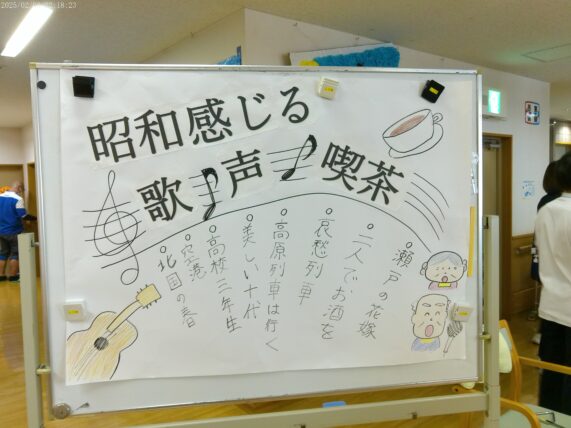 2025/02/
:18:23
昭和感じる
歌声喫茶
瀬戸の花嫁
二人でお酒を
哀愁列車
高原列車は行く
美しい十代
高校三年生
空港
北国の春